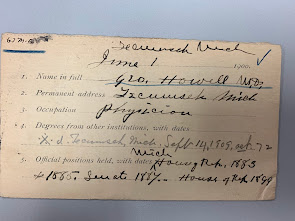 Tecumseh Mich
June 1 1900.
1. Name in full Geo. Howell M.D.
2. Permanent address Tecumseh Mich
3. Occupation Physician
4. Degrees from other institutions, with dates
d. Tecumseh, Mich. Sept. 14, 1905, aet. 72
Mich
5. Official positions held, with dates House of Rep. 1883
& 1885. Senate 1887. House of Rep 1899